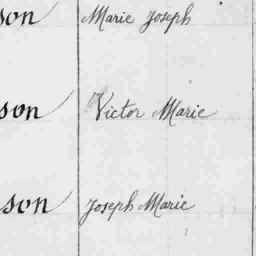 son Marie Joseph
son Victor Marie
son Joseph Marie